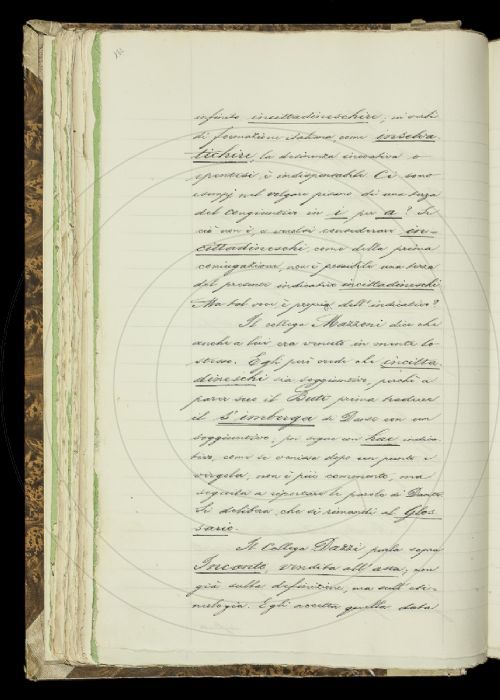 infinito incittadineschire; in verbi
di formazione italiana, come inselva
tichire, la desinenza incoativa o
epentesi è indispensabile. Ci sono
esempj nel volgare pisano di una terza
del congiuntivo in i per a? Se
ciò non è, a volerla considerare in=
cittadineschi, come della prima
coniugazione, non è possibile una terza
del presente indicativo incittadineschi.
Ma tal voce è propria dell'indicativo?
Il collega Mazzoni dice che
anche a lui era venuto in mente lo
stesso. Egli però crede che incitta
dineschi sia soggiuntivo, perchè a
parer suo il Buti prima traduce
il s'imberga di Dante con un
soggiuntivo; poi segue con hae indica
tivo, come se venisse dopo un punto e
virgola, non è più commento, ma
seguita a riportare le parole di Dante.
Si delibera, che si rimandi al Glos
sario.
Il Collega Dazzi parla sopra
Incanto, vendita all'asta, non
già sulla definizione, ma sull'eti=
mologia. Egli accetta quella data